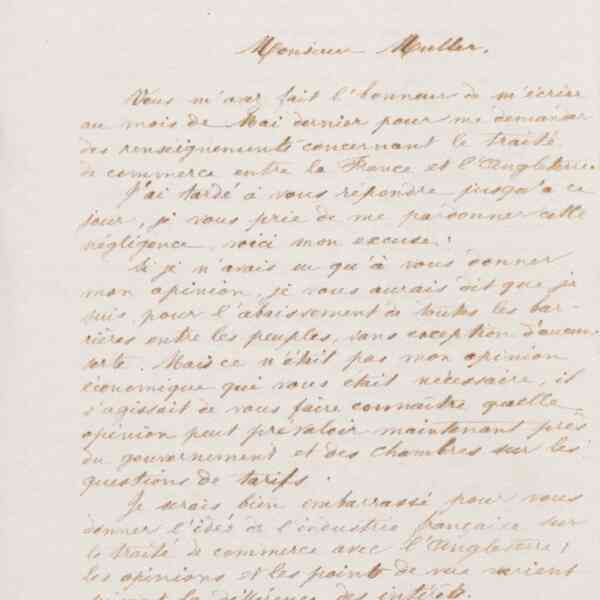 Monsieur Muller.
Vous m'avez fait l'honneur de m'écrire
au mois de Mai dernier pour me demander
des renseignements concernant le traité
de commerce entre la France et l'Angleterre.
J'ai tardé à vous répondre jusqu'à ce
jour, je vous prie de me pardonner cette
négligence, voici mon excuse:
Si je n'avais eu qu'à vous donner
mon opinion, je vous aurais dit que je
suis pour l'abaissement de toutes les bar-
rières entre les peuples, sans exception d'aucune
sorte. Mais ce n'était pas mon opinion
économique qui vous était nécessaire, il
s'agissait de vous faire connaître quelle
opinion peut prévaloir maintenant près
du gouvernement et des chambres sur les
questions de tarifs.
Je serais bien embarrassé pour vous
donner l'idée de l'industrie française sur
le traité de commerce avec l'Angleterre;
les opinions et les points de vue varient
suivant la différence des intérêts.